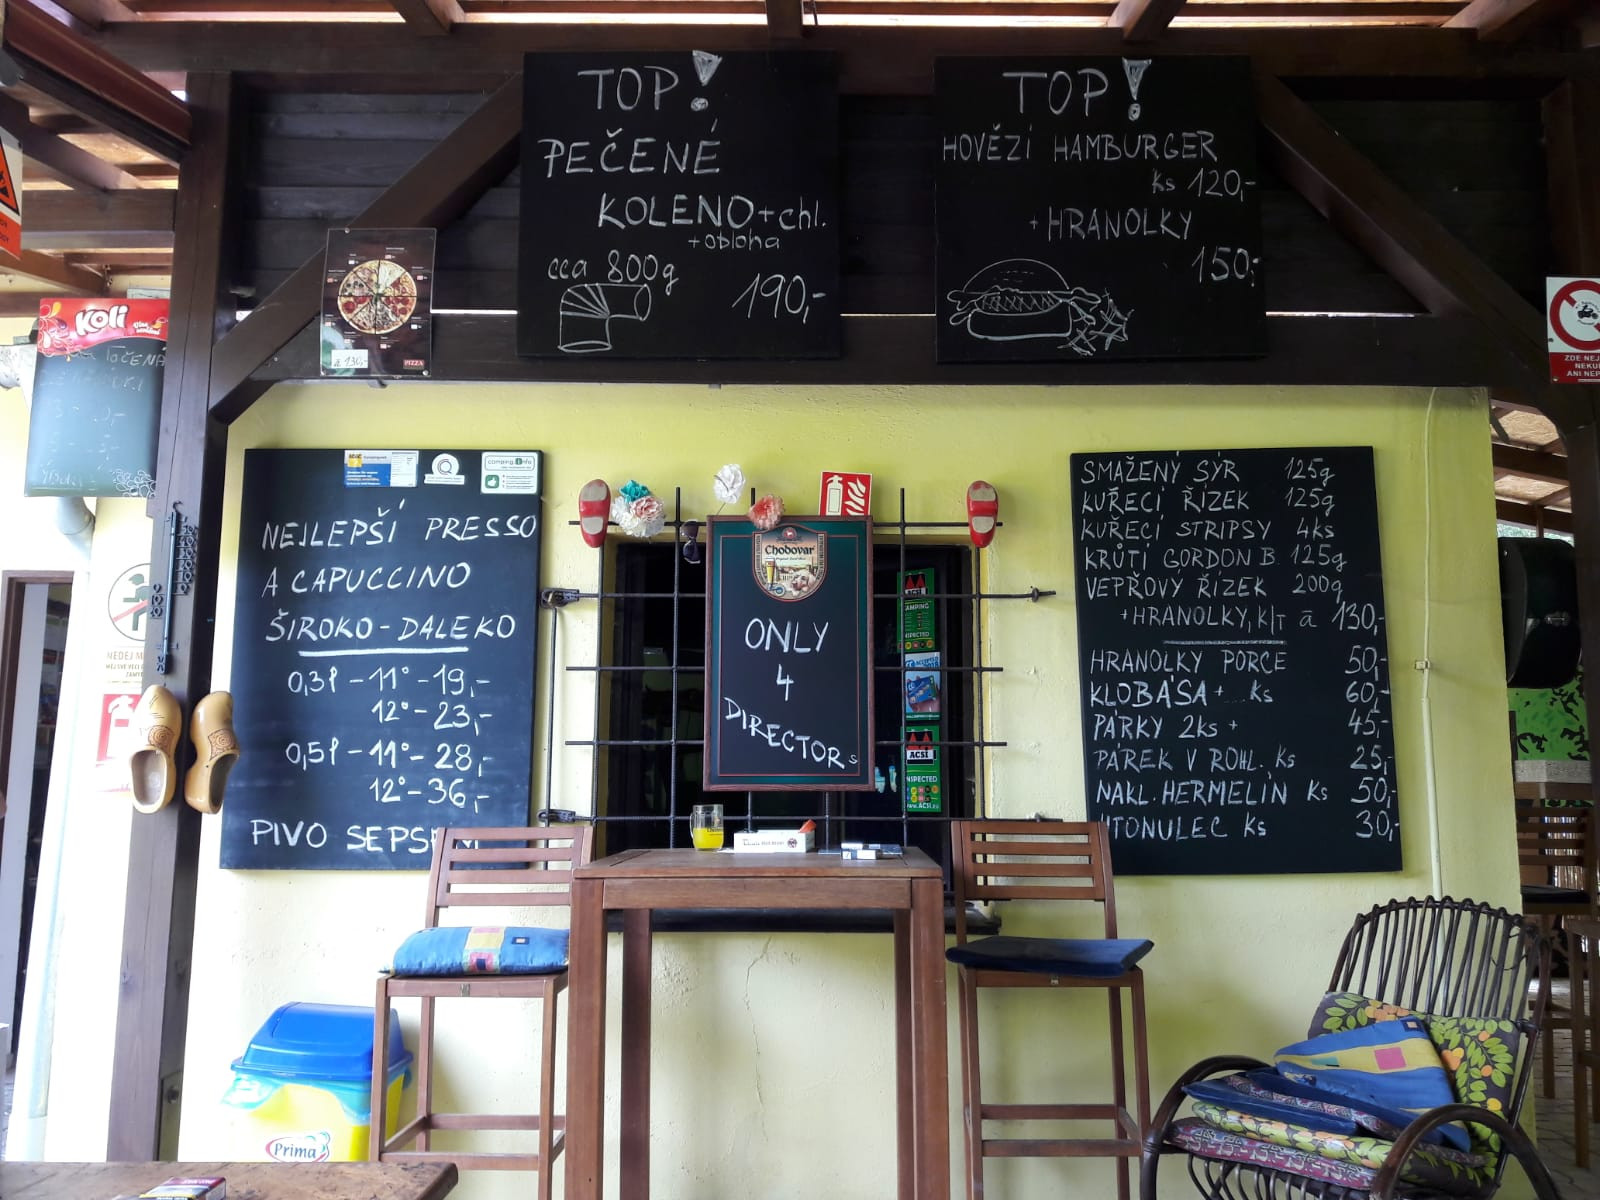 TOP!
PEČENÉ
KOLENO + chl.
+ obloha
cca 800g
190,-
TOP!
HOVĚZÍ HAMBURGER
ks 120,-
+ HRANOLKY
150,-
á 130,-
PIZZA
Koli
TOČENÁ
NEJLEPŠÍ PRESSO
A CAPUCCINO
ŠIROKO - DALEKO
0,3l - 11° - 19,-
12° - 23,-
0,5l - 11° - 28,-
12° - 36,-
PIVO
Chodovar
ONLY
4
DIRECTORs
ACSI
CAMPING
INSPECTED
ACSI
INSPECTED
www.ACSI.eu
SMAŽENÝ SÝR 125g
KUŘECÍ ŘÍZEK 125g
KUŘECÍ STRIPSY 4ks
KRŮTÍ GORDON B. 125g
VEPŘOVÝ ŘÍZEK 200g
+ HRANOLKY, K|T á 130,-
HRANOLKY PORCE 50,-
KLOBÁSA + ks 60,-
PÁRKY 2ks + 45,-
PÁREK V ROHL. ks 25,-
NAKL. HERMELÍN ks 50,-
UTOPENEC ks 30,-
ZDE NEJ
NEKU
ANI NEP
Prima